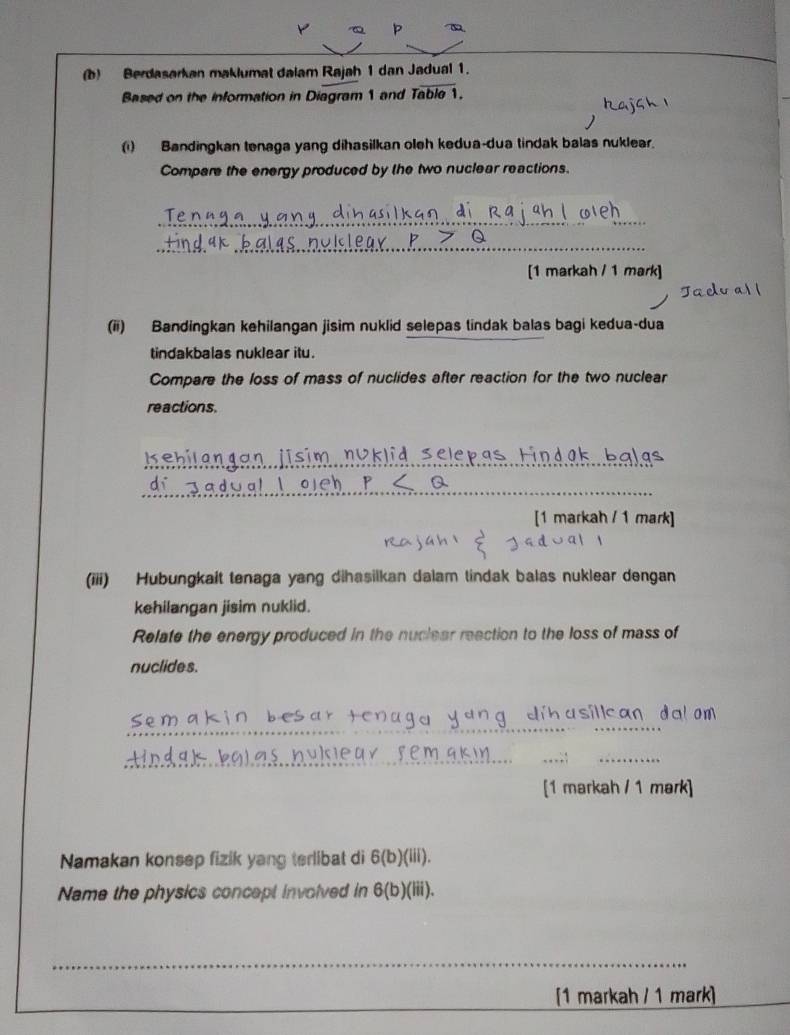 P Q P Q
(b) Berdasarkan maklumat dalam Rajah 1 dan Jadual 1.
Based on the information in Diagram 1 and Table 1.
Rajah 1
(i) Bandingkan tenaga yang dihasilkan oleh kedua-dua tindak balas nuklear.
Compare the energy produced by the two nuclear reactions.
Tenaga yang dihasilkan di Rajah 1 oleh
tindak balas nuklear P > Q
[1 markah / 1 mark]
Jadual 1
(ii) Bandingkan kehilangan jisim nuklid selepas tindak balas bagi kedua-dua
tindakbalas nuklear itu.
Compare the loss of mass of nuclides after reaction for the two nuclear
reactions.
Kehilangan jisim nuklid selepas tindak balas
di Jadual 1 oleh P < Q
[1 markah / 1 mark]
Rajah 1 & Jadual 1
(iii) Hubungkait tenaga yang dihasilkan dalam tindak balas nuklear dengan
kehilangan jisim nuklid.
Relate the energy produced in the nuclear reaction to the loss of mass of
nuclides.
semakin besar tenaga yang dihasilkan dalam
tindak balas nuklear semakin
[1 markah / 1 mark]
Namakan konsep fizik yang terlibat di 6(b)(iii).
Name the physics concept involved in 6(b)(iii).
[1 markah / 1 mark]